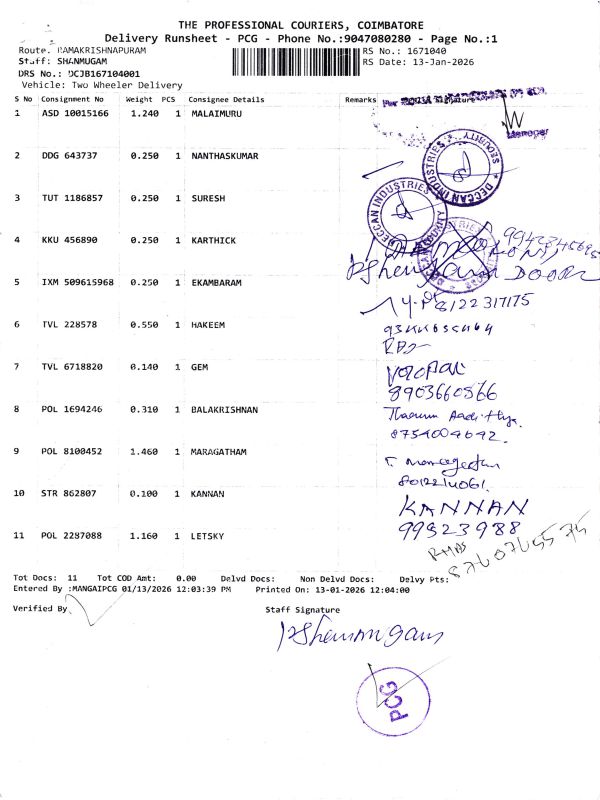 THE PROFESSIONAL COURIERS, COIMBATORE
Delivery Runsheet - PCG - Phone No.:9047080280 - Page No.:1
Route. RAMAKRISHNAPURAM
RS No.: 1671040
Staff: SHANMUGAM
RS Date: 13-Jan-2026
DRS No.: DCJB167104001
Vehicle: Two Wheeler Delivery
S No Consignment No Weight PCS Consignee Details Remarks Signature
Manager
1 ASD 10015166 1.240 1 MALAIMURU
2 DDG 643737 0.250 1 NANTHASKUMAR
DECCAN INDUSTRIES * SECURITY *
3 TUT 1186857 0.250 1 SURESH
DECCAN INDUSTRIES * SECURITY
4 KKU 456890 0.250 1 KARTHICK
5 IXM 509615968 0.250 1 EKAMBARAM
DOOR
8122317175
6 TVL 228578 0.550 1 HAKEEM
7 TVL 6718820 0.140 1 GEM
8903660566
8 POL 1694246 0.310 1 BALAKRISHNAN
8754009692.
9 POL 8100452 1.460 1 MARAGATHAM
10 STR 862807 0.100 1 KANNAN
KANNAN
99523988
11 POL 2287088 1.160 1 LETSKY
Tot Docs: 11 Tot COD Amt: 0.00 Delvd Docs: Non Delvd Docs: Delvy Pts:
Entered By :MANGAIPCG 01/13/2026 12:03:39 PM Printed On: 13-01-2026 12:04:00
Verified By
Staff Signature
PCG